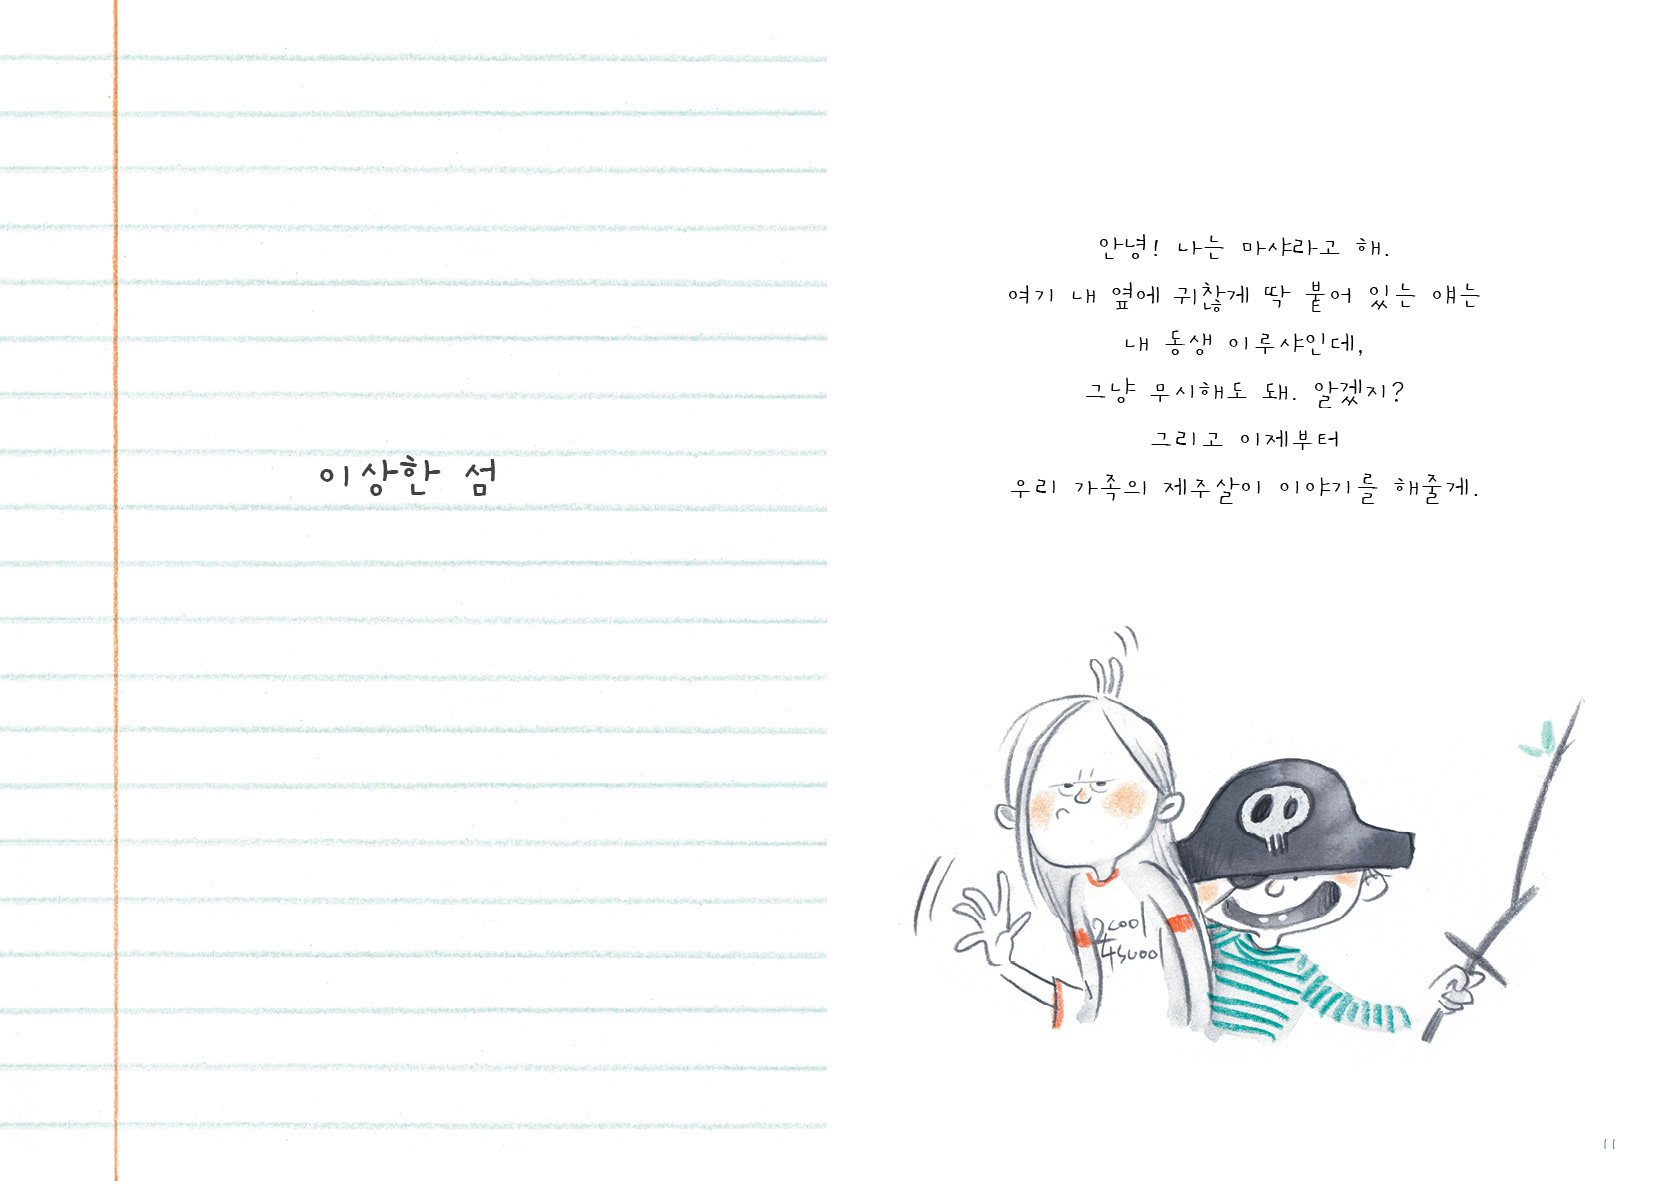 이상한 섬
안녕! 나는 마샤라고 해.
여기 내 옆에 귀찮게 딱 붙어 있는 얘는
내 동생 이루샤인데,
그냥 무시해도 돼. 알겠지?
그리고 이제부터
우리 가족의 제주살이 이야기를 해줄게.
2cool
4suool
11